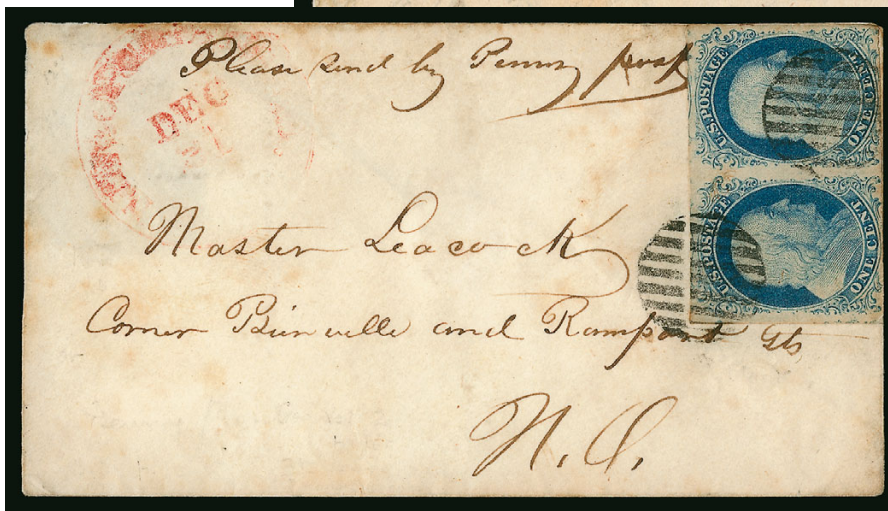 Please send by Penny post
DEC
U.S. POSTAGE
ONE CENT
U.S. POSTAGE
ONE CENT
Master Leacock
Corner Bienville and Rampart Sts
N. O.